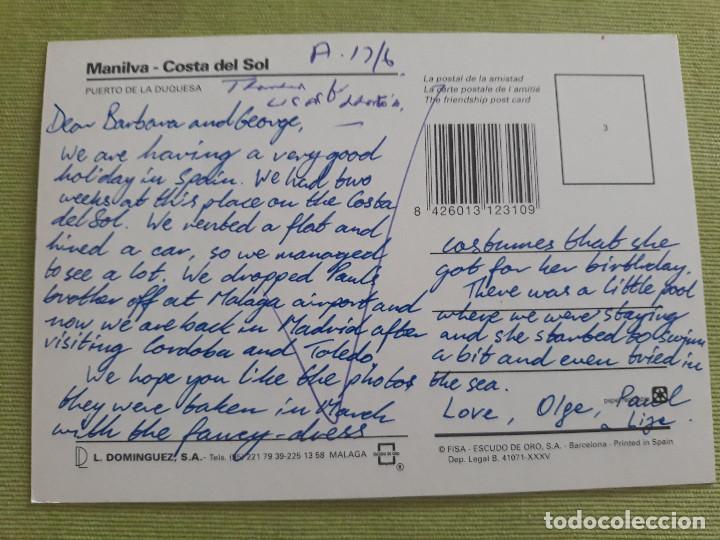 Manilva - Costa del Sol
A. 17/6
PUERTO DE LA DUQUESA
Dear Barbara and George,
We are having a very good
holiday in Spain. We had two
weeks at this place on the Costa
del Sol. We rented a flat and
hired a car, so we managed
to see a lot. We dropped Paul's
brother off at Malaga airport and
now, we are back in Madrid after
visiting Cordoba and Toledo
We hope you like the photos
they were taken in March
with the fancy-dress
L. DOMINGUEZ, S.A.- Tels. (95) 221 79 39-225 13 58 MALAGA
ESCUDO DE ORO
®
La postal de la amistad
La carte postale de l'amitié
The friendship post card
3
8 426013 123109
costumes that she
got for her birthday.
There was a little pool
where we were staying
and she started to swim
a bit and even tried in
the sea.
Love, Olga, Paul
© FISA - ESCUDO DE ORO, S.A. - Barcelona - Printed in Spain
Dep. Legal B. 41071-XXXV
todocoleccion